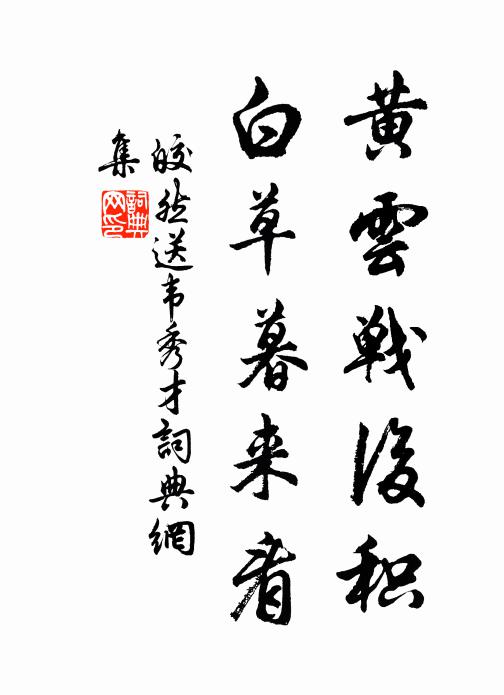 黄雲戦後积
白草暮来看
皎然送韦秀才詞典網
集
詞典
网印